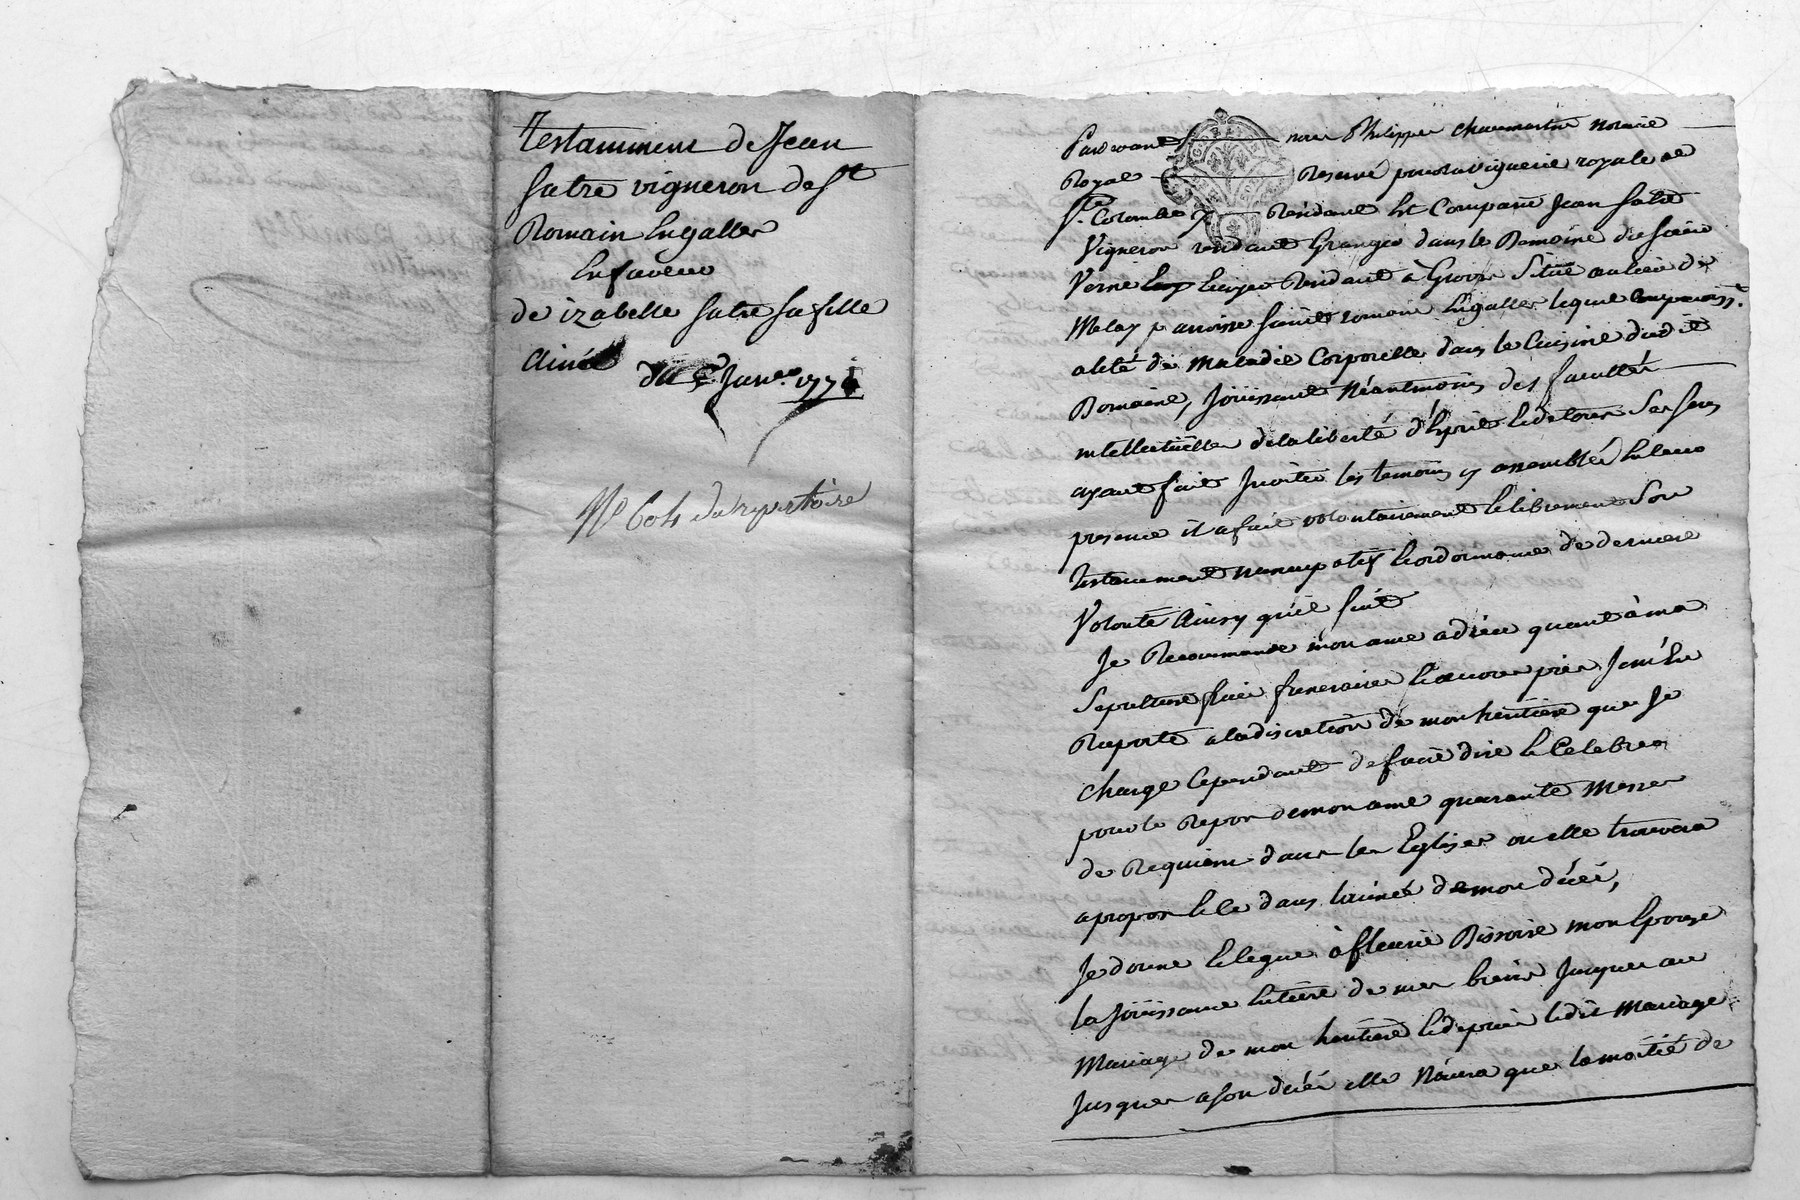 Testamment de Jean
Satre vigneron de St
Romain Engaller
En faveur
de izabelle Satre sa fille
Ainée
du 5e Janer 1774
No 604 du repertoire
Pardevant nous Philippe Chaumartin notaire
Royal Reservé pour la viguerie royale de
Ste Colombe y Residant Est Comparu Jean Satre
Vigneron rendant Granger dans le Domaine du sieur
Verne Residant à Givors Situé au lieu de
Malay paroisse saint romain Engaller lequel
alité de Maladie Corporelle dans la Cuisine dudit
Domaine, Joüissant Néantmoins des facultés
intellectuelles de la liberté d'Esprit Et de tous Ses sens
ayant fait Inviter les temoins y assemblés En leur
presence il a fait volontairement Et librement Son
testament nuncupatif Et ordonnance de derniere
Volonté Ainsy qu'il suit
Je Recommande mon ame a dieu quant à ma
Sepulture frais funeraires Et œuvres pies Je m'En
Raporte a la discretion de mon heritiere que Je
charge Cependant de faire dire Et Celebrer
pour le Repos de mon ame quarante Messes
de Requiem dans les Eglises ou elle trouvera
apropos Et Ce dans l'année de mon décès,
Je donne Et legue à fleurie Bissoire mon Epouse
la Joüissance Entiere de mes biens Jusques au
Mariage de mon heritiere Et depuis ledit Mariage
Jusques a son décès elle N'aura que la moitié de